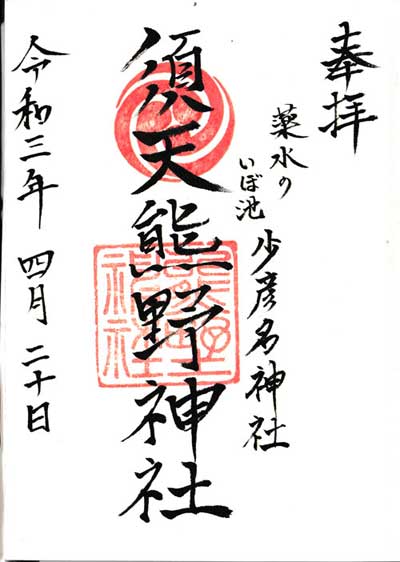 奉拝
薬水の
いぼ池
少彦名神社
須天熊野神社
令和三年 四月 二十日